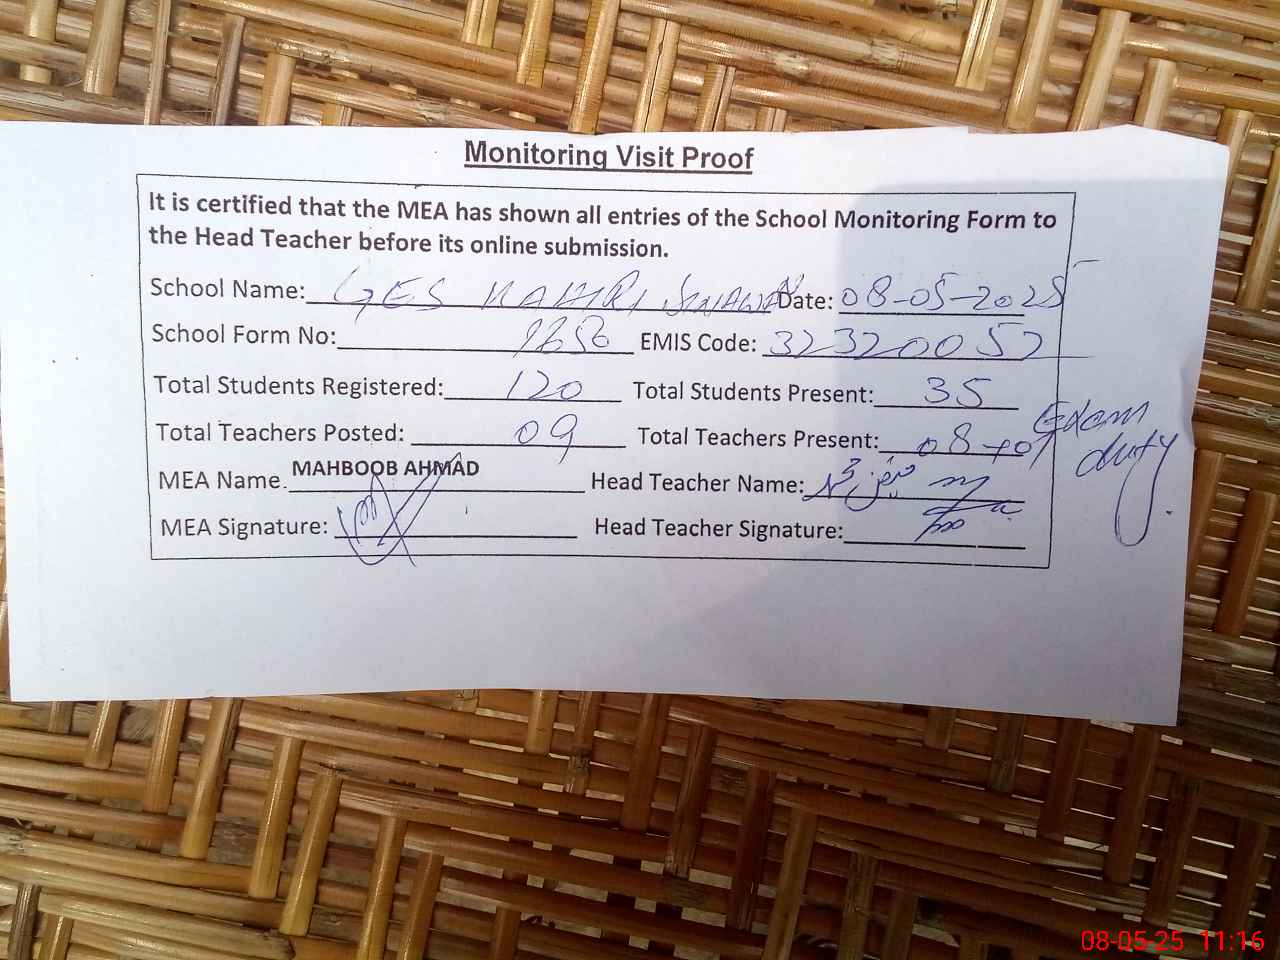 Monitoring Visit Proof
It is certified that the MEA has shown all entries of the School Monitoring Form to
the Head Teacher before its online submission.
School Name: GES KAHIRI SINAWAN Date: 08-05-2025
School Form No: EMIS Code: 32320052
Total Students Registered: 120 Total Students Present: 35
Total Teachers Posted: 09 Total Teachers Present: 08+01 Exam duty
MEA Name. MAHBOOB AHMAD Head Teacher Name:
MEA Signature: Head Teacher Signature:
08-05-25 11:16